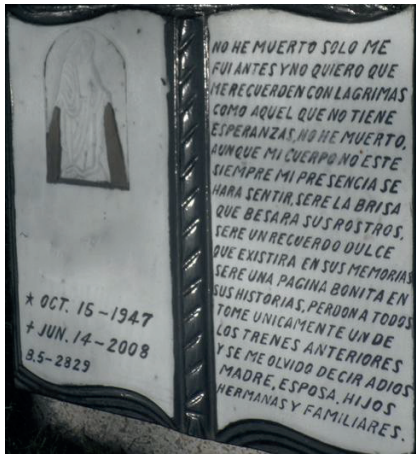 * OCT. 15-1947
+ JUN. 14-2008
B.5-2829
NO HE MUERTO SOLO ME
FUI ANTES Y NO QUIERO QUE
ME RECUERDEN CON LAGRIMAS
COMO AQUEL QUE NO TIENE
ESPERANZAS, NO HE MUERTO,
AUNQUE MI CUERPO NO ESTE
SIEMPRE MI PRESENCIA SE
HARA SENTIR, SERE LA BRISA
QUE BESARA SUS ROSTROS,
SERE UN RECUERDO DULCE
QUE EXISTIRA EN SUS MEMORIAS
SERE UNA PAGINA BONITA EN
SUS HISTORIAS, PERDON A TODOS
TOME UNICAMENTE UN DE
LOS TRENES ANTERIORES
Y SE ME OLVIDO DECIR ADIOS
MADRE, ESPOSA, HIJOS
HERMANAS Y FAMILIARES.